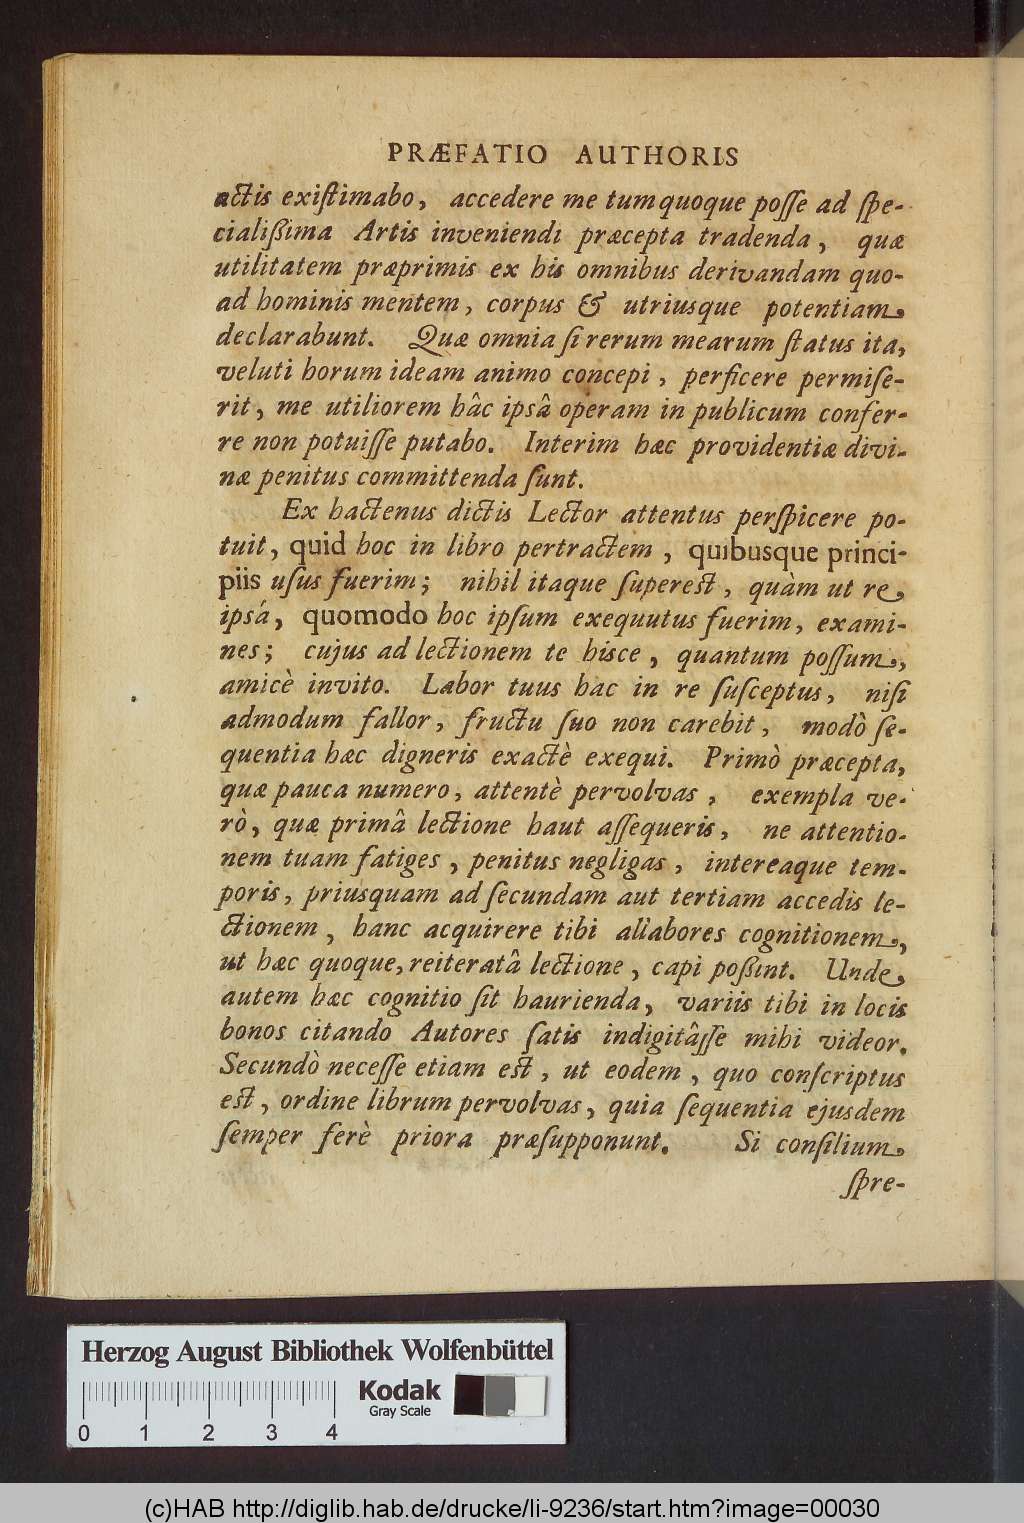 PRÆFATIO AUTHORIS
actis existimabo, accedere me tum quoque posse ad spe-
cialißima Artis inveniendi præcepta tradenda, quæ
utilitatem præprimis ex his omnibus derivandam quo-
ad hominis mentem, corpus & utriusque potentiam
declarabunt. Quæ omnia si rerum mearum status ita,
veluti horum ideam animo concepi, perficere permise-
rit, me utiliorem hâc ipsâ operam in publicum confer-
re non potuisse putabo. Interim hæc providentiæ divi-
næ penitus committenda sunt.
Ex hactenus dictis Lector attentus perspicere po-
tuit, quid hoc in libro pertractem, quibusque princi-
piis usus fuerim; nihil itaque superest, quàm ut re
ipsâ, quomodo hoc ipsum exequutus fuerim, exami-
nes; cujus ad lectionem te hisce, quantum possum,
amicè invito. Labor tuus hac in re susceptus, nisi
admodum fallor, fructu suo non carebit, modò se-
quentia hæc digneris exactè exequi. Primò præcepta,
quæ pauca numero, attentè pervolvas, exempla ve-
rò, quæ primâ lectione haut assequeris, ne attentio-
nem tuam fatiges, penitus negligas, intereaque tem-
poris, priusquam ad secundam aut tertiam accedis le-
ctionem, hanc acquirere tibi allabores cognitionem,
ut hæc quoque, reiteratâ lectione, capi poßint. Unde
autem hæc cognitio sit haurienda, variis tibi in locis
bonos citando Autores satis indigitâsse mihi videor.
Secundò necesse etiam est, ut eodem, quo conscriptus
est, ordine librum pervolvas, quia sequentia ejusdem
semper ferè priora præsupponunt. Si consilium
spre-
Herzog August Bibliothek Wolfenbüttel
Kodak
Gray Scale
0 1 2 3 4
(c)HAB http://diglib.hab.de/drucke/li-9236/start.htm?image=00030